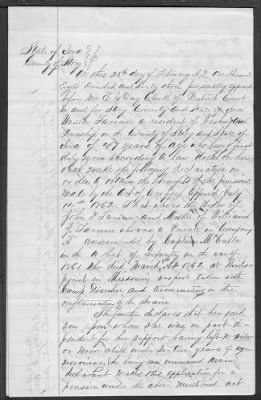 State of Iowa } SS
County of Story }
On this 25th day of February A.D. One thousand
Eight Hundred and Sixty three personally appeared
before me E. G. Day Clerk of District Court
in and for Story County and State of Iowa
a resident of Washington
Township in the County of Story and State of
Iowa of 47 years of age who being first
duly sworn according to Law doth on her
oath make the following declaration in
order to obtain the benefits of the provisions
made by the Act of Congress approved July
14th 1862. That she is the Widow of
John and Mother of William
who was a Private in Company
commanded by Captain McCalla
in the Regt of Infantry in the early
1861 Who died March A.D. 1862 at
point in Missouri disease taken with
Camp and terminating in the
inflammation of the Brain
She further declares that her said
son upon whom she was in part de
pendent for her support having left no widow
or minor child under sixteen years of age
surviving she being now unmarried
declarant makes this application for a
pension under the above mentioned act